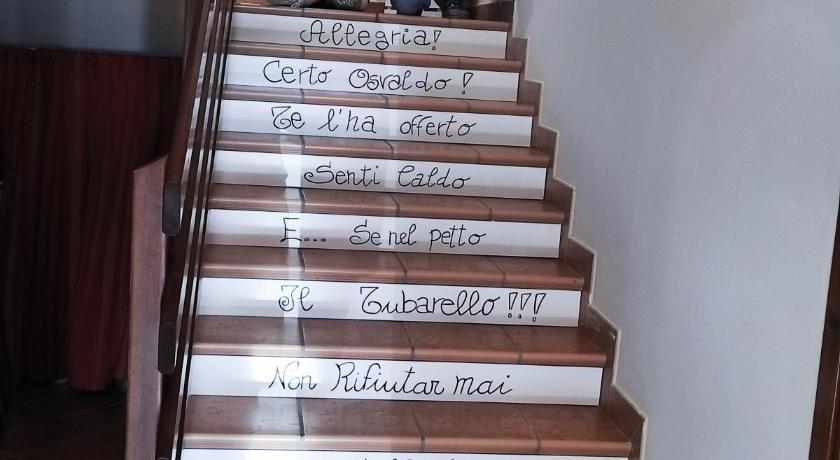 Allegria!
Certo Osvaldo!
Te l'ha offerto
Senti Caldo
E... Se nel petto
Il Tubarello!!!
Non Rifiutar mai